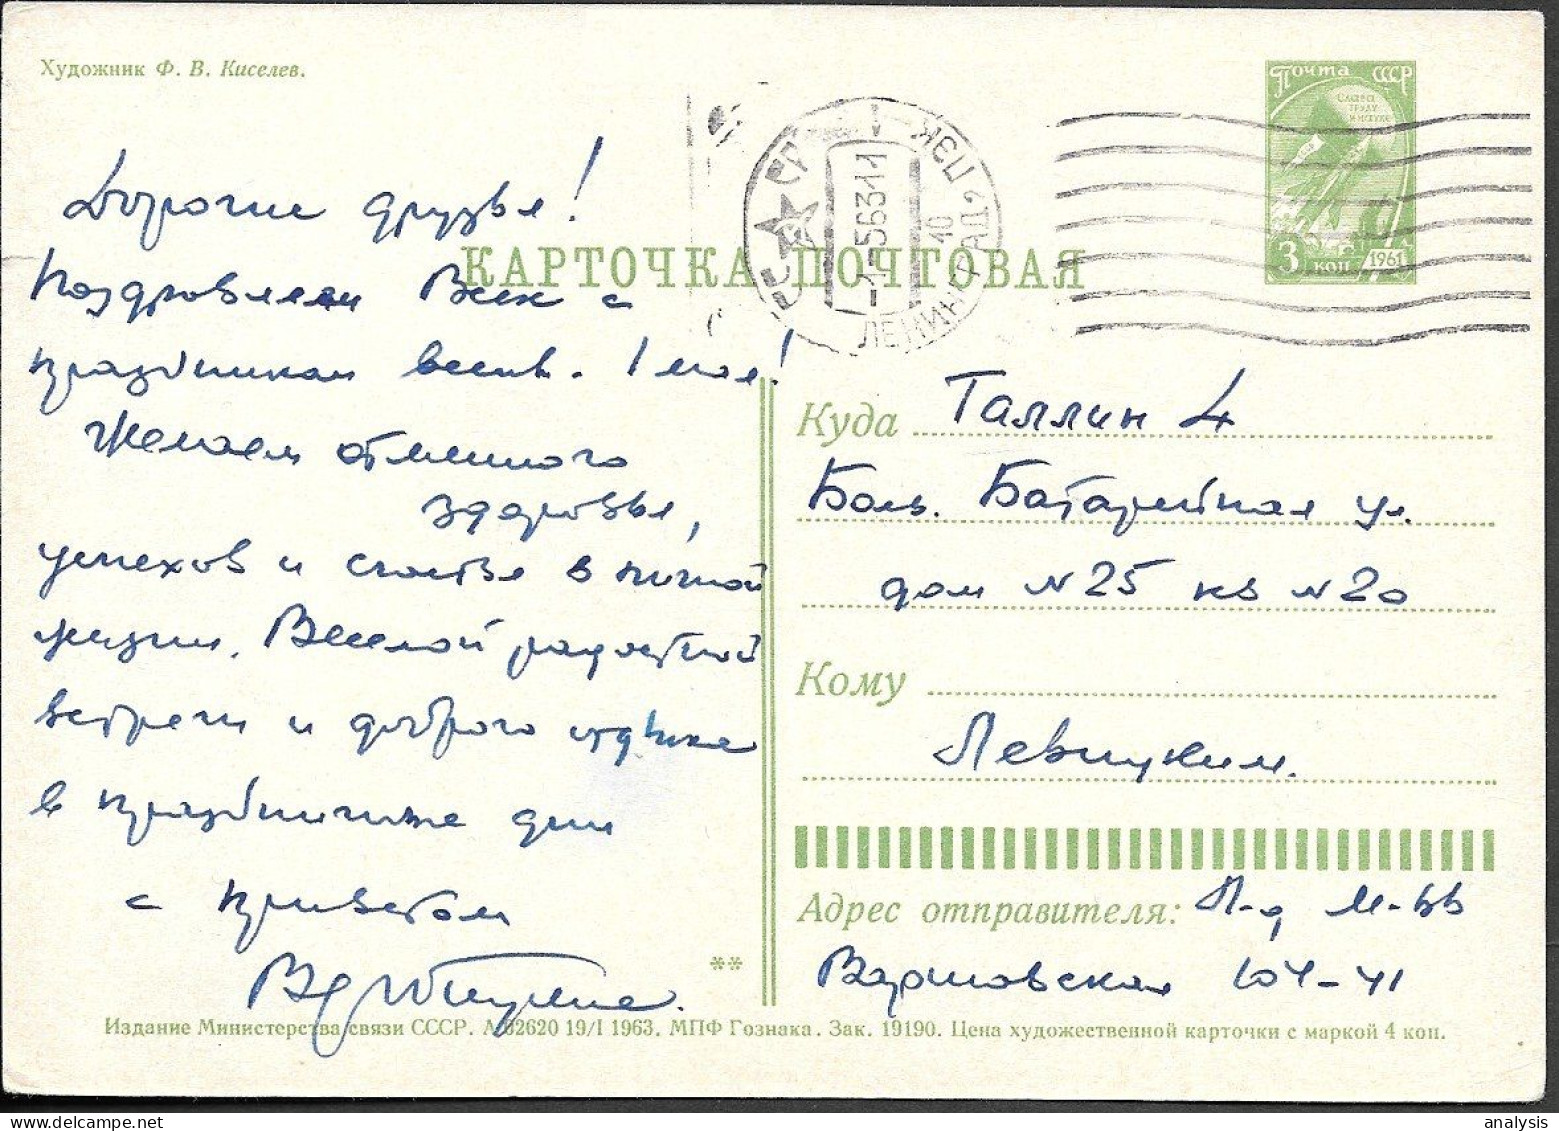 Художник Ф. В. Киселев.
Почта СССР
СЛАВА
ТРУДУ
И НАУКЕ
3 коп
1961
СССР
-1-56311
10
ЛЕНИНГРАД
КАРТОЧКА ПОЧТОВАЯ
Дорогие друзья!
Поздравляем Всех с
праздником весны - 1 мая!
Желаем отменного
здоровья,
успехов и счастья в личной
жизни. Веселой радостной
встречи и доброго отдыха
в праздничные дни
с приветом
Куда Таллин 4
Боль. Батарейная ул.
дом N 25 кв N 20
Кому
Левицким.
Адрес отправителя: Л-д М-
Варшовская 104-41
**
Издание Министерства связи СССР. А 02620 19/I 1963. МПФ Гознака. Зак. 19190. Цена художественной карточки с маркой 4 коп.
analysis